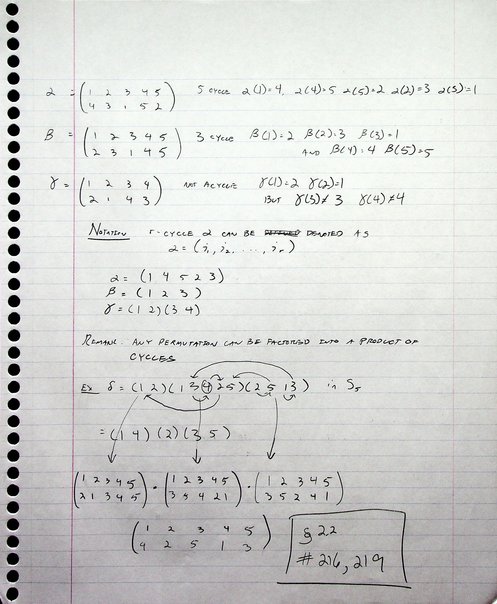 α = ( 1 2 3 4 5 5 CYCLE α(1)=4, α(4)=5 α(5)=2 α(2)=3 α(3)=1
4 3 1 5 2 )
β = ( 1 2 3 4 5 3 CYCLE β(1)=2 β(2)=3 β(3)=1
2 3 1 4 5 ) AND β(4)=4 β(5)=5
γ = ( 1 2 3 4 NOT A CYCLE γ(1)=2 γ(2)=1
2 1 4 3 ) BUT γ(3)≠3 γ(4)≠4
NOTATION r-CYCLE α CAN BE DENOTED AS
α = (i₁, i₂, ..., iᵣ)
α = (1 4 5 2 3)
β = (1 2 3)
γ = (1 2)(3 4)
REMARK: ANY PERMUTATION CAN BE FACTORED INTO A PRODUCT OF
CYCLES
EX δ = (1 2)(1 3 4 2 5)(2 5 1 3) in S₅
= (1 4)(2)(3 5)
( 1 2 3 4 5 ) · ( 1 2 3 4 5 ) · ( 1 2 3 4 5 )
2 1 3 4 5 3 5 4 2 1 3 5 2 4 1
( 1 2 3 4 5 )
4 2 5 1 3
§ 2.2
# 216, 219